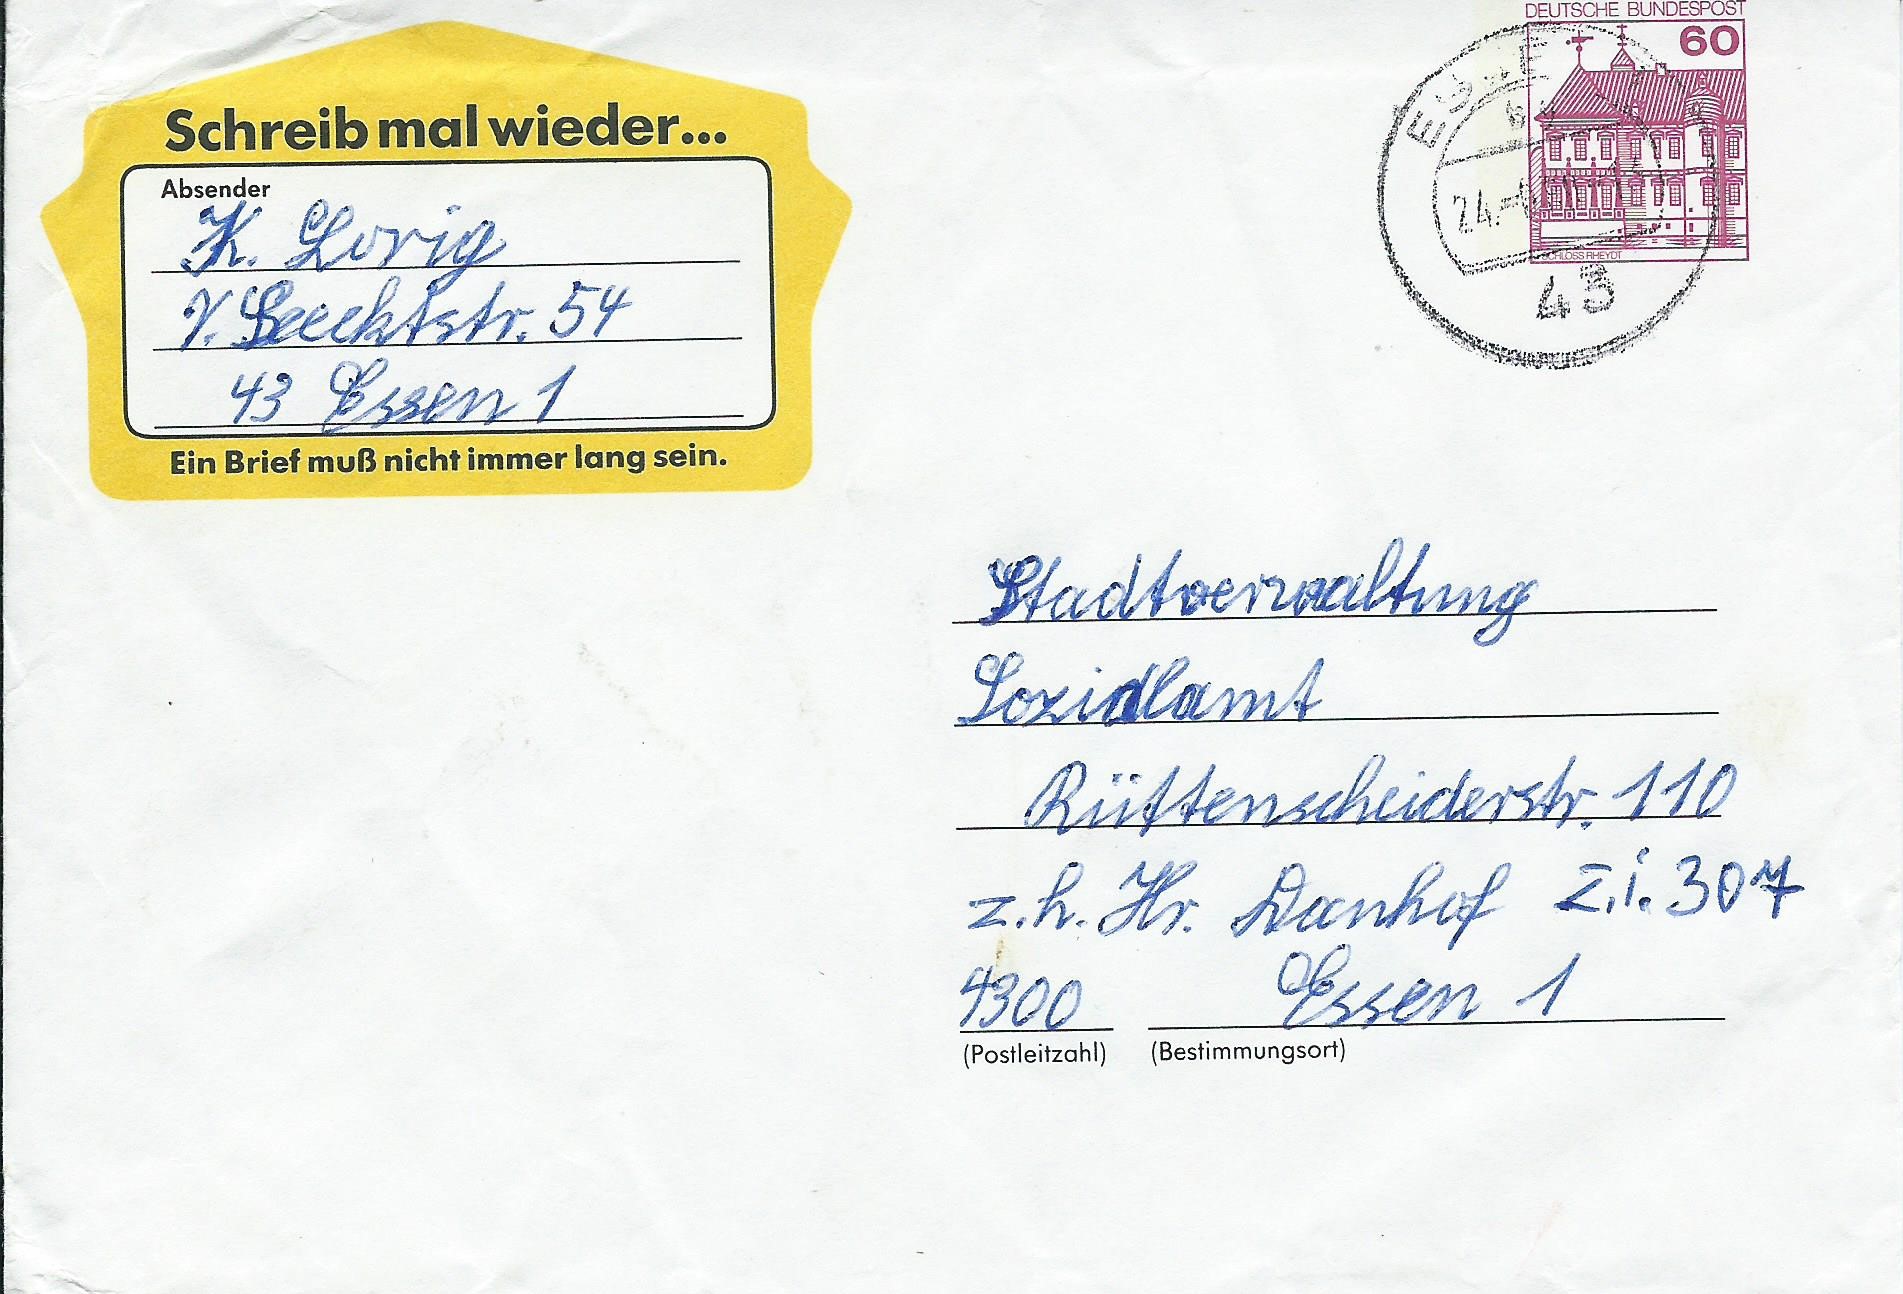 DEUTSCHE BUNDESPOST
60
SCHLOSS RHEYDT
43
Schreib mal wieder...
Absender
K. Lorig
V. Seecktstr. 54
43 Essen 1
Ein Brief muß nicht immer lang sein.
Stadtverwaltung
Sozialamt
Rüttenscheiderstr. 110
z.h. Hr. Danhof Z.i. 307
4300 Essen 1
(Postleitzahl) (Bestimmungsort)